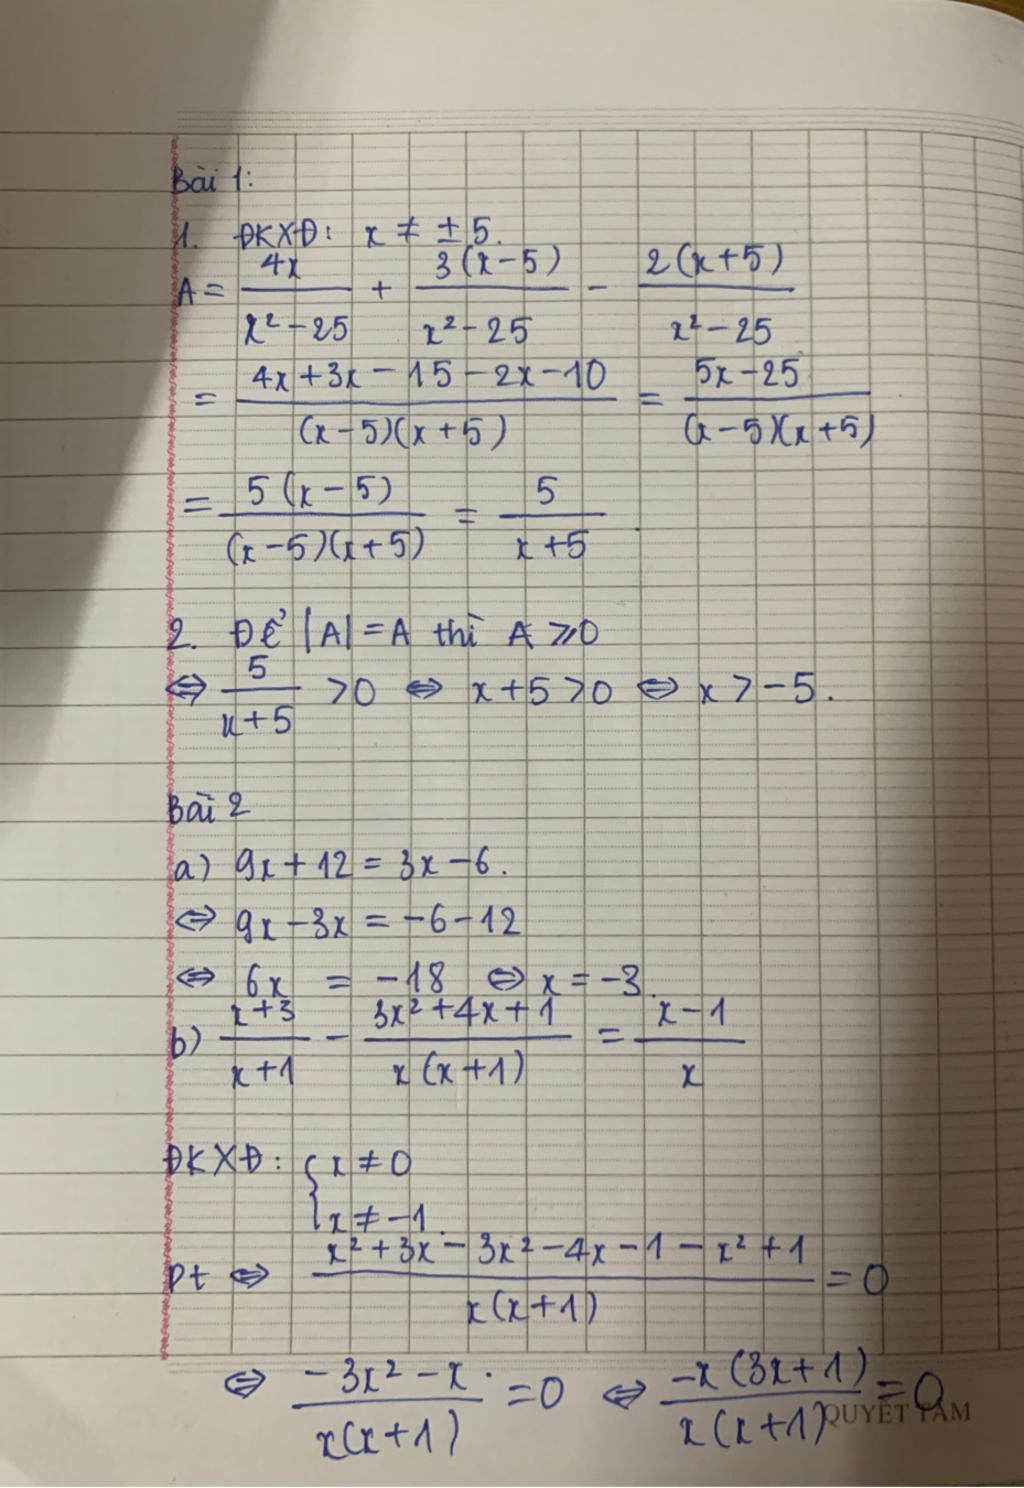 Bài 1:
1. ĐKXĐ: x ≠ ± 5.
A = 4x / (x² - 25) + 3(x - 5) / (x² - 25) - 2(x + 5) / (x² - 25)
= (4x + 3x - 15 - 2x - 10) / ((x - 5)(x + 5)) = (5x - 25) / ((x - 5)(x + 5))
= 5(x - 5) / ((x - 5)(x + 5)) = 5 / (x + 5) .
2. Để |A| = A thì A ⩾ 0
⇔ 5 / (x + 5) > 0 ⇔ x + 5 > 0 ⇔ x > -5.
Bài 2
a) 9x + 12 = 3x - 6.
⇔ 9x - 3x = -6 - 12
⇔ 6x = -18 ⇔ x = -3.
b) (x + 3) / (x + 1) - (3x² + 4x + 1) / (x(x + 1)) = (x - 1) / x
ĐKXĐ: { x ≠ 0
x ≠ -1.
Pt ⇔ (x² + 3x - 3x² - 4x - 1 - x² + 1) / (x(x + 1)) = 0
⇔ (-3x² - x) / (x(x + 1)) = 0 ⇔ -x(3x + 1) / (x(x + 1)) = 0
QUYẾT TÂM